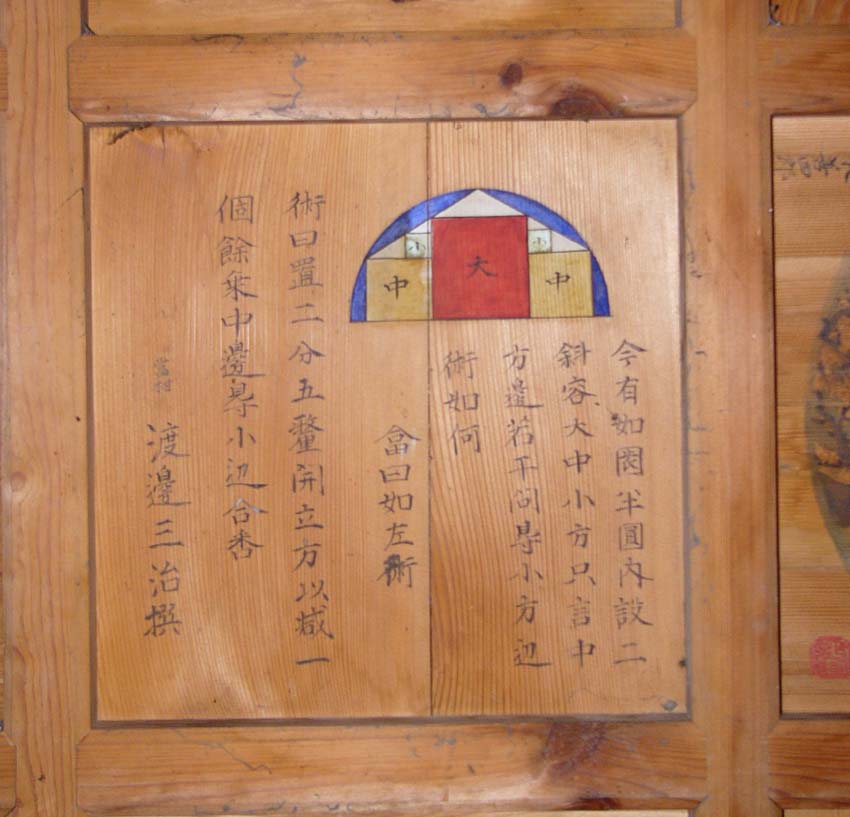 小
小
中
大
中
今有如圖半圓内設二
斜容大中小方只言中
方邊若干問得小方辺
術如何
畣曰如左術
術曰置二分五釐開立方以減一
個餘乗中邊得小辺合問
當村 渡邊三治撰